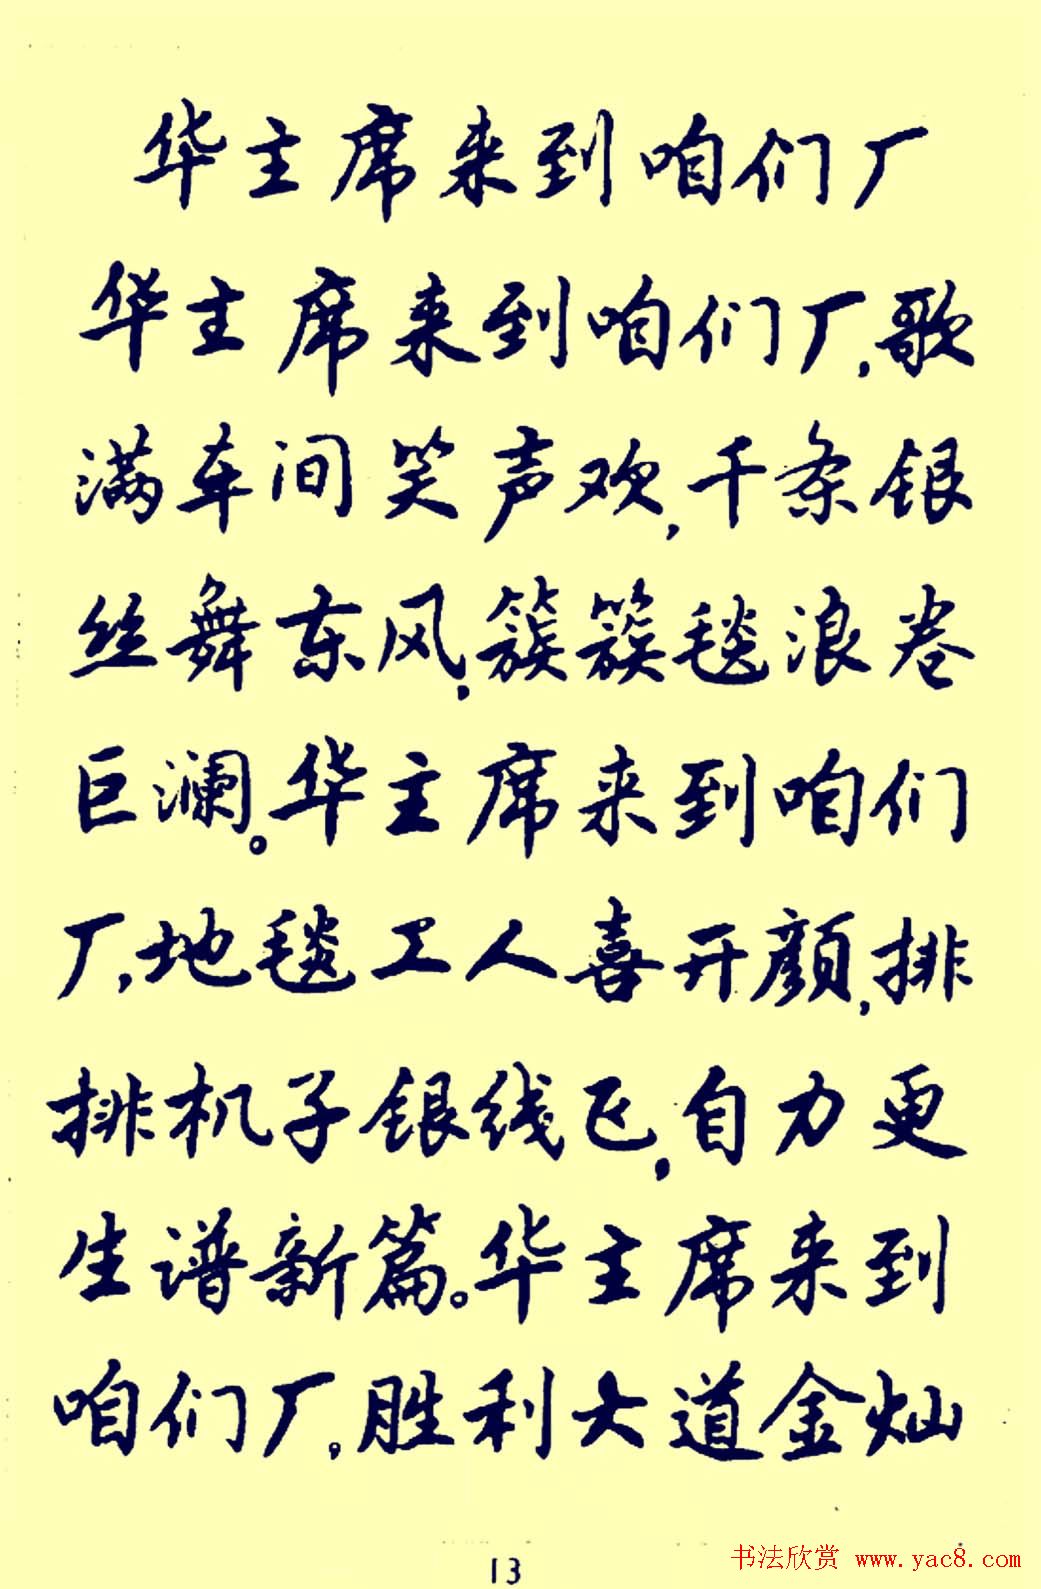 华主席来到咱们厂
华主席来到咱们厂,歌
满车间笑声欢,千条银
丝舞东风,簇簇毯浪卷
巨澜。华主席来到咱们
厂,地毯工人喜开颜,排
排机子银线飞,自力更
生谱新篇。华主席来到
咱们厂,胜利大道金灿
13
书法欣赏 www.yac8.com